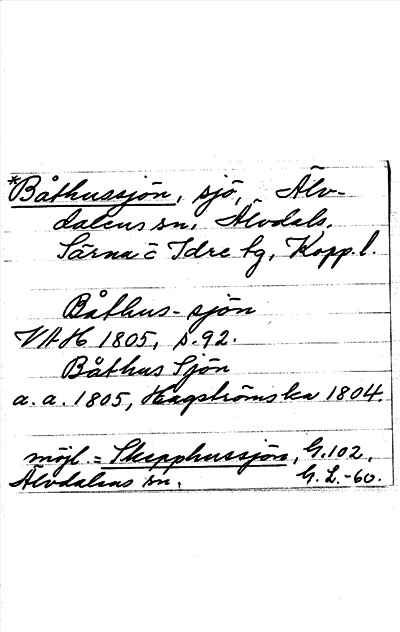 *Båthussjön, sjö, Älv-
dalens sn, Älvdals,
Särna o Idre tg, Kopp. l.
Båthus-sjön
VAH 1805, s. 92.
Båthus Sjön
a. a. 1805, Hagströms ka 1804.
möjl. = Skepphussjön, G. 102,
Älvdalens sn. G. L. -60.